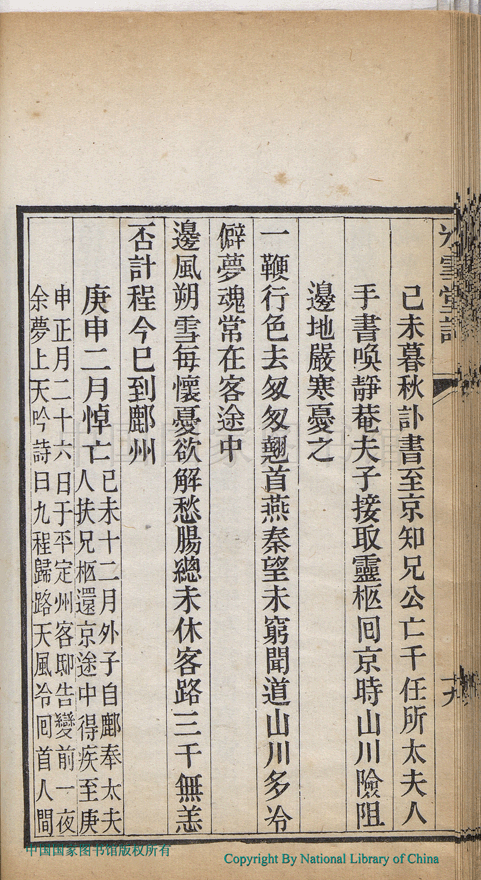 己未暮秋訃書至京知兄公亡于任所太夫人
手書喚靜菴夫子接取靈柩囘京時山川險阻
邊地嚴寒憂之
一鞭行色去匆匆翹首燕秦望未窮聞道山川多冷
僻夢魂常在客途中
邊風朔雪每懷憂欲解愁腸總未休客路三千無恙
否計程今已到鄜州
庚申二月悼亡己未十二月外子自鄜奉太夫
人扶兄柩還京途中得疾至庚
申正月二十六日于平定州客邸告變前一夜
余夢上天吟詩曰九程歸路天風冷囘首人間
雪堂詩
十九
中国国家图书馆版权所有
Copyright By National Library of China